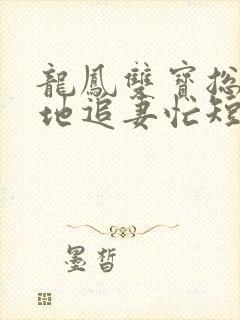 龍鳳雙寶
地追妻忙短
墨皙